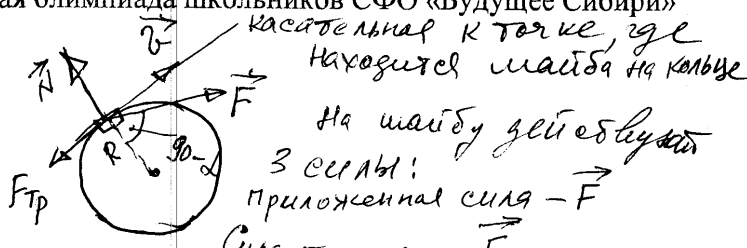 ая олимпиада школьников СФО «Будущее Сибири»
касательная к точке, где
находится шайба на кольце
v
N
F
На шайбу действуют
R
90-α
3 силы:
Fтр
приложенная сила – F
F